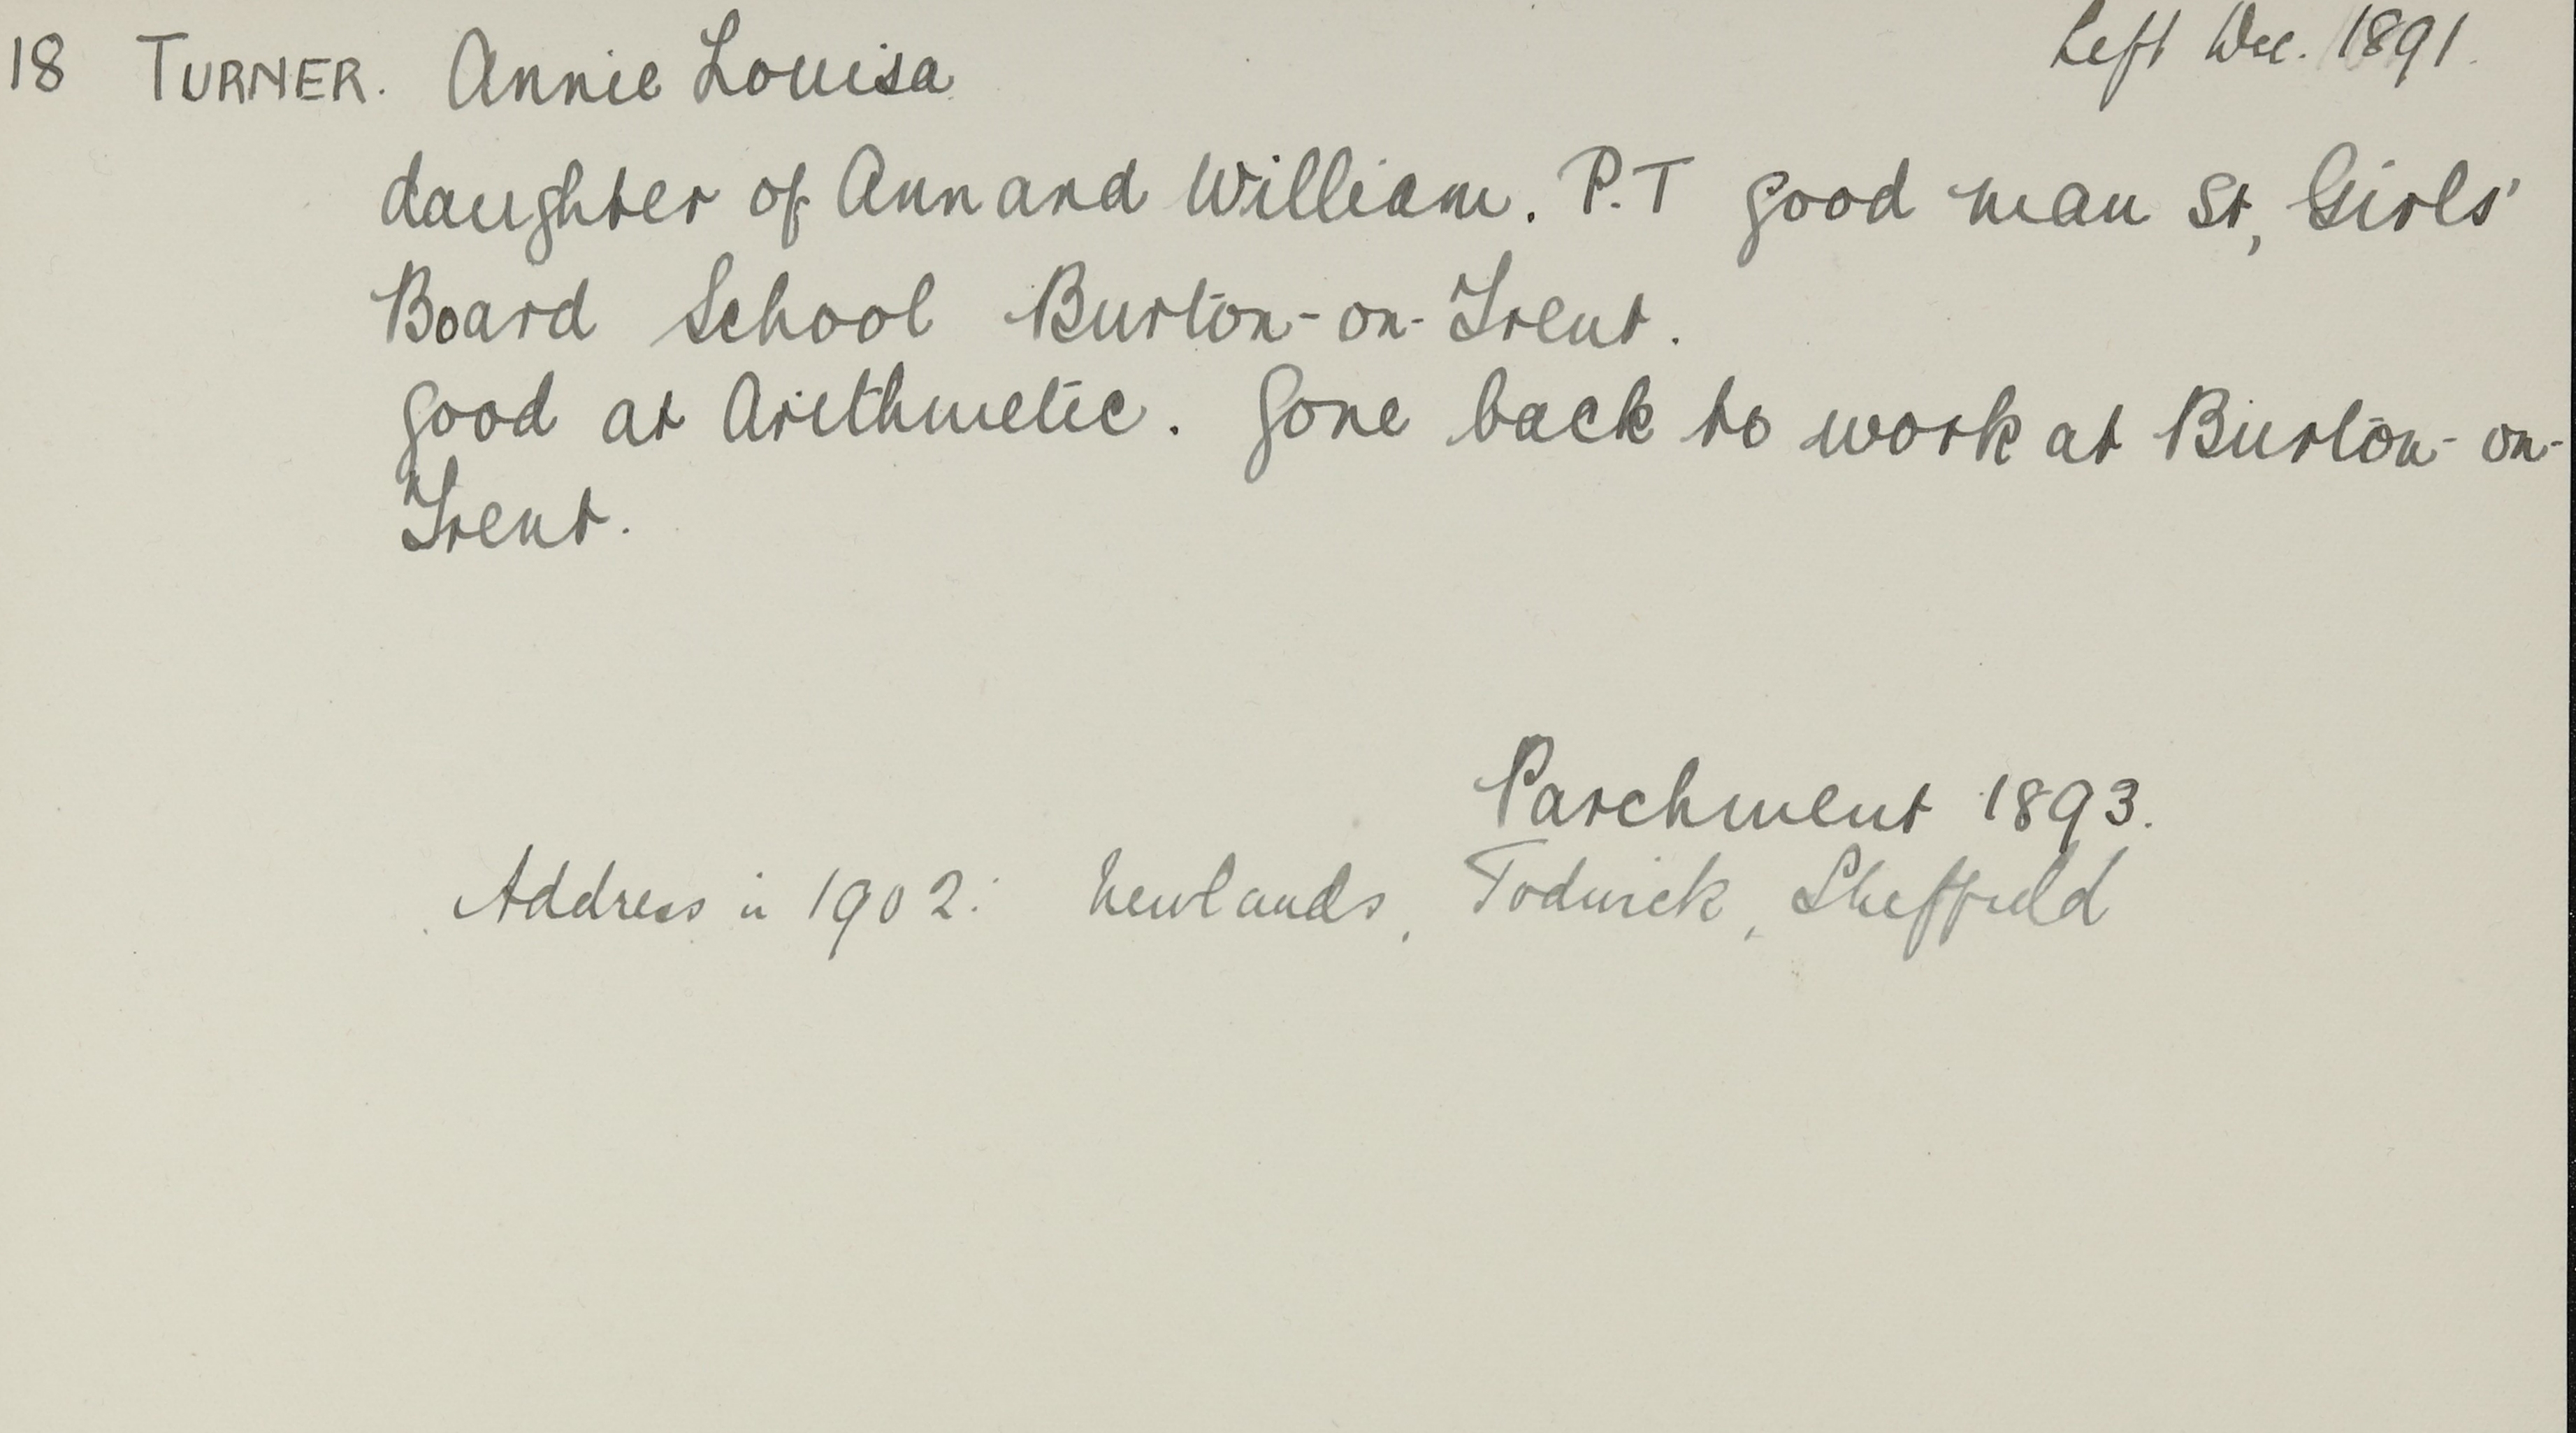 18 TURNER. Annie Louisa Left Dec. 1891.
daughter of Ann and William. P.T good man St, Girls'
Board School Burton-on-Trent.
good at Arithmetic. Gone back to work at Burton-on-
Trent.
Parchment 1893.
Address in 1902: Newlands, Todwick, Sheffield